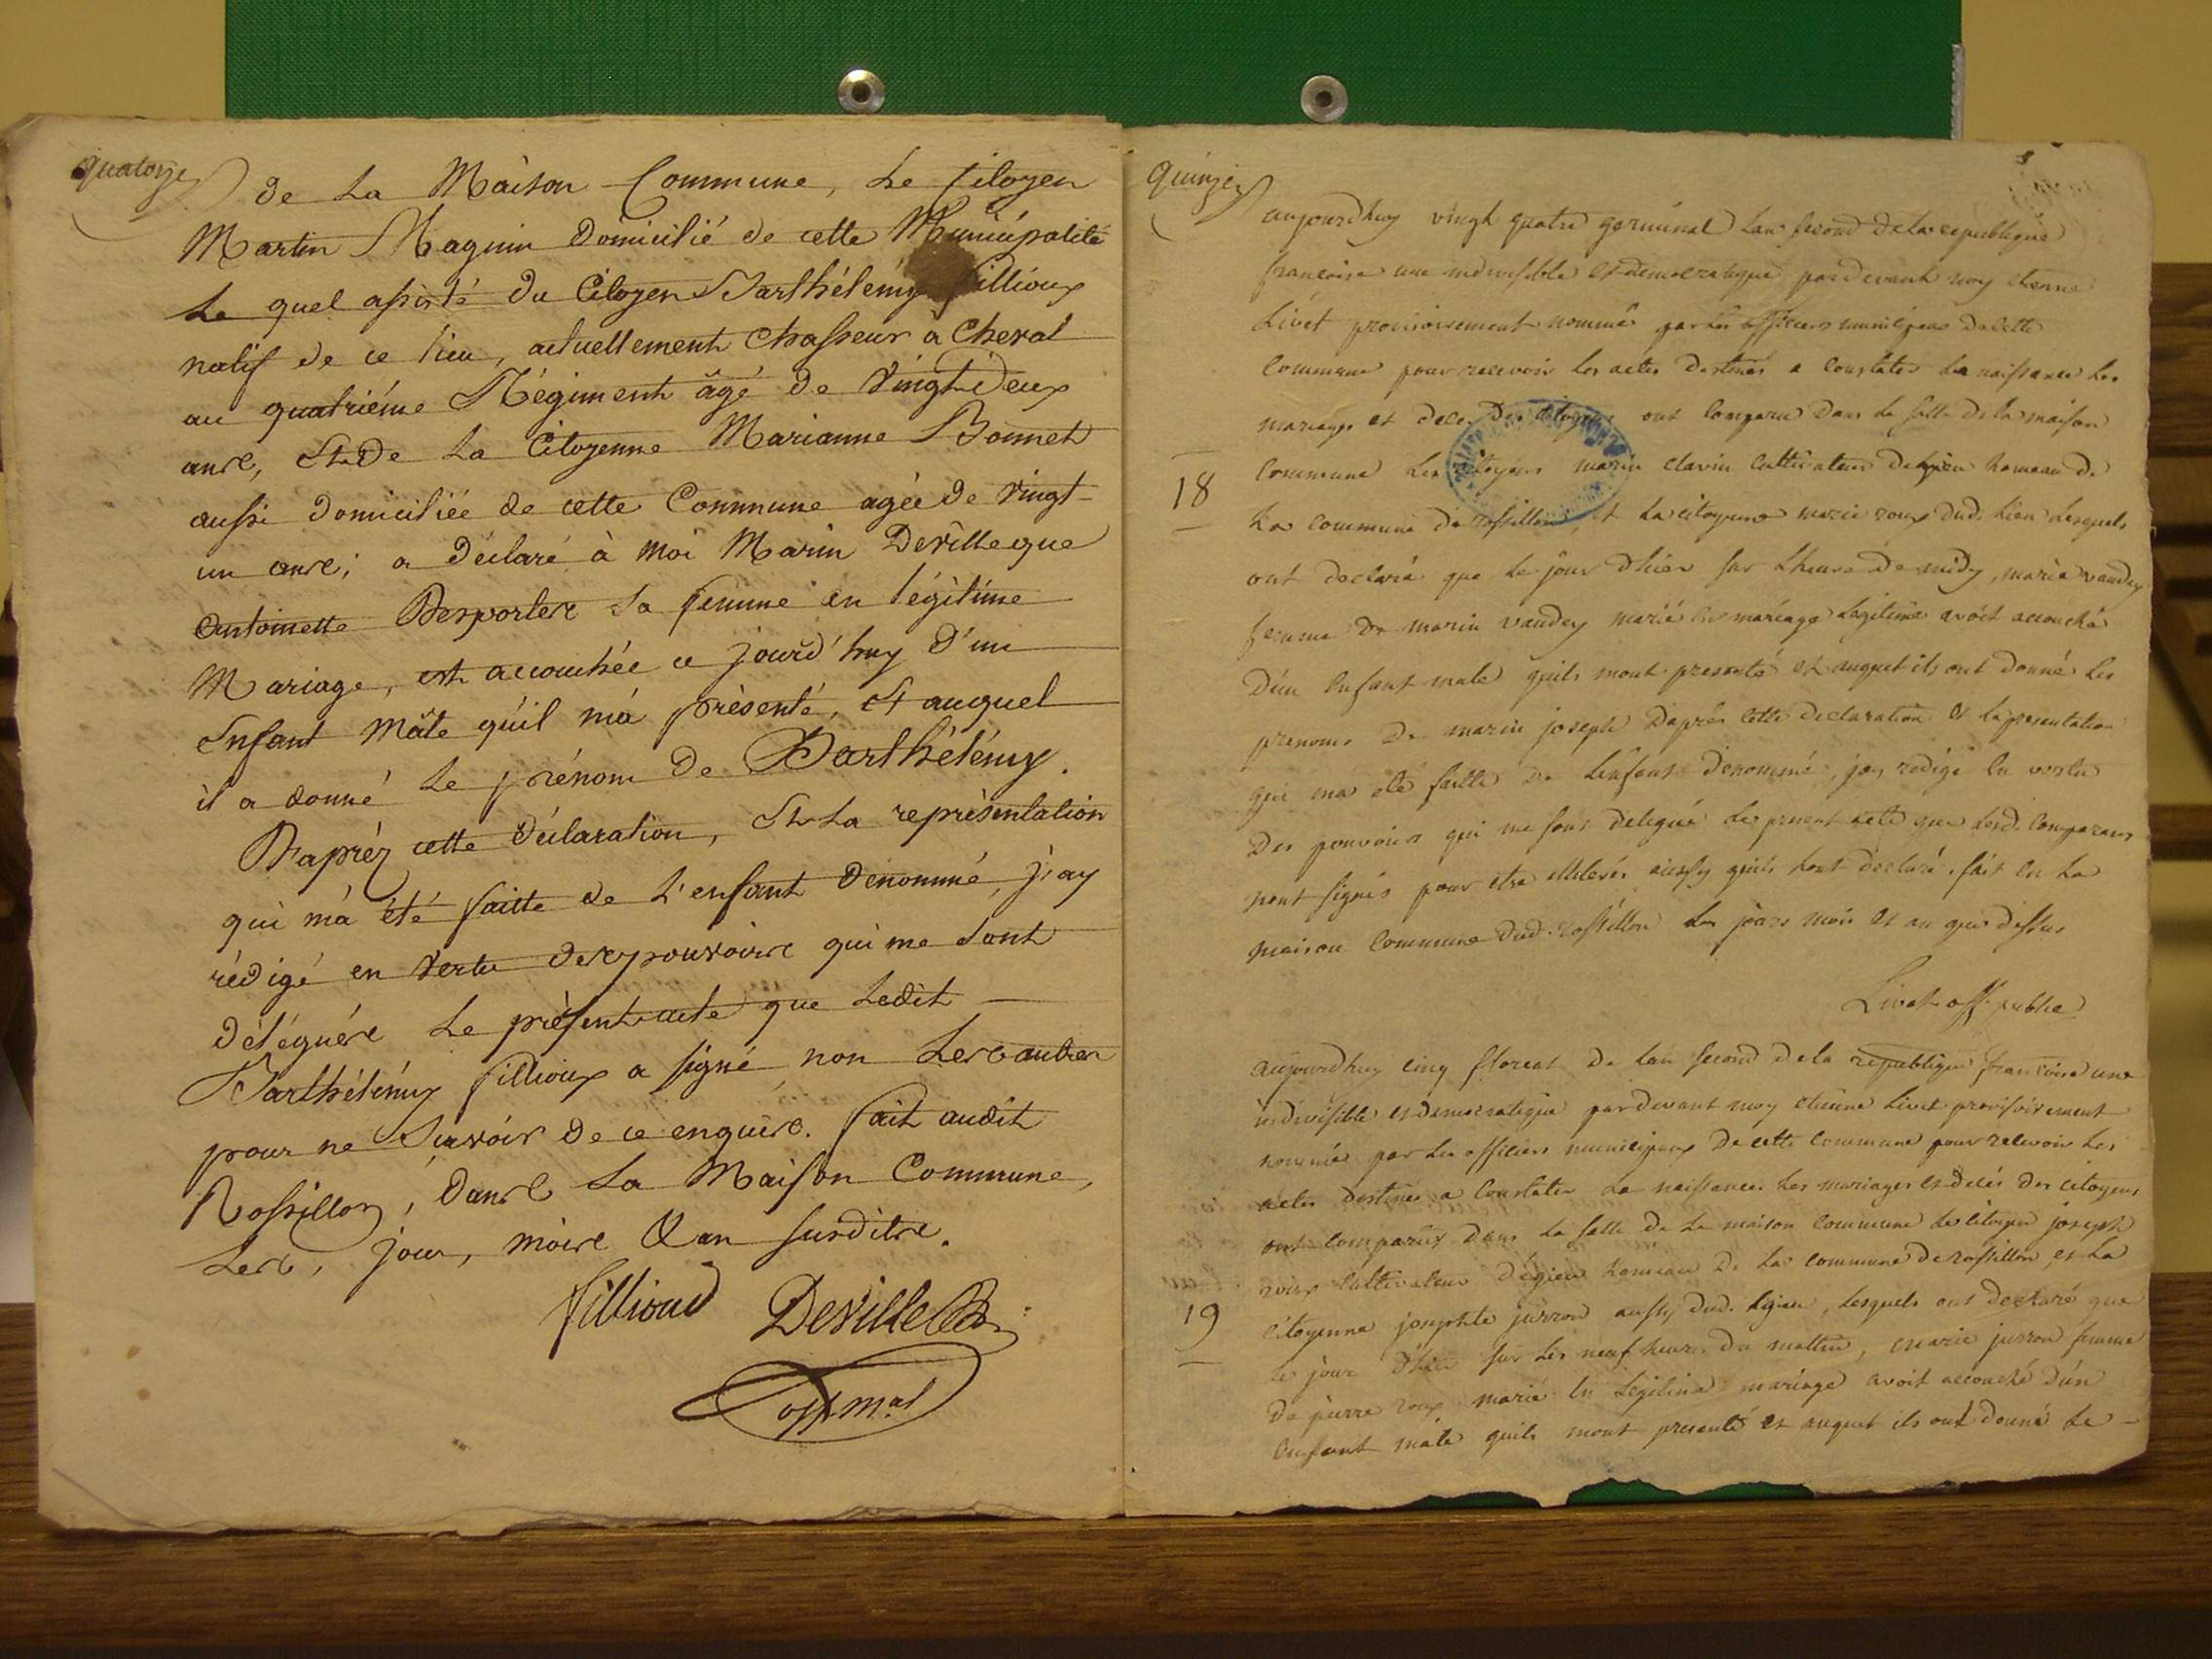 quatorze
de La Maison Commune, Le Citoyen
Martin Magnin Domicilié de cette Municipalité
Le quel assisté du Citoyen Barthélémy fillioux
natif de ce lieu, actuellement Chasseur à Cheval
au quatriéme Régiment âgé de Vingt Deux
ans, Et De La Citoyenne Marianne Bonnet
aussi Domiciliée de cette Commune agée de Vingt-
un ans; a Déclaré à Moi Marin Deville que
Antoinette Desportes Sa femme en légitime
Mariage, est accouchée ce jourd'huy D'un
Enfant Mâle qu'il m'a présenté, Et auquel
il a donné Le prénom de Barthélémy.
D'apréz cette Déclaration, Et La représentation
qui m'a été faitte de L'enfant Dénommé, j'ay
rédigé en Vertu des pouvoirs qui me Sont
Délégués Le présent acte que Ledit
Barthélémy fillioux a signé non Les autres
pour ne Sçavoir De ce enquis. Fait audit
Rossillon, Dans La Maison Commune,
Les, jour, mois & an susdits.
fillioud Deville
off. mal
quinze
aujourdhuy vingt quatre germinal Lan second De La republique
francoise une indivisible et democratique pardevant moy etienne
Livet provisoirement nommé par les officiers municipaux De cette
Commune pour recevoir les actes Destinés a Constater La naissance Les
mariages et deces Des citoyens ont Comparu Dans La salle De La maison
18
Commune Les citoyens marin clavin Cultivateur hameau De
La Commune De rossillon, et La citoyenne marie roux Dud. Lieu Lesquels
ont declaré que Le jour D'hier sur L'heure De midy, marie vaudey
femme De marin vaudey marié en mariage Legitime avoit accouché
D'un Enfant male quils mont presenté et auquel ils ont Donné Les
prenoms De marin joseph D'après Cette declaration et La presentation
qui ma eté faitte De L'enfant Denommé, jay redigé En vertu
Des pouvoirs qui me sont Delegué Le present acte que Lesd. Comparans
nont signés pour etre illiterés ainsy quils Lont declaré. fait En La
maison Commune Dud. rossillon Les jours mois et an que Dessus
Livet off. public
aujourdhuy cinq floreal De Lan second De La republique francoise une
indivisible et democratique pardevant moy etienne Livet provisoirement
nommé par Les officiers municipaux De cette Commune pour recevoir Les
actes Destinés a Constater La naissance Les mariages et décés Des citoyens
ont Comparus Dans La salle De La maison Commune Le citoyen joseph
roux Cultivateur D'égieu hameau De La Commune De rossillon, et La
19
Citoyenne josephte jurron aussy dud. Egieu, Lesquels ont Declaré que
Le jour D'hier sur Les neuf heures Du mattin, marie jurron femme
De pierre roux marié En Legitime mariage avoit accouché D'un
Enfant mâle quils mont presenté et auquel ils ont Donné Le